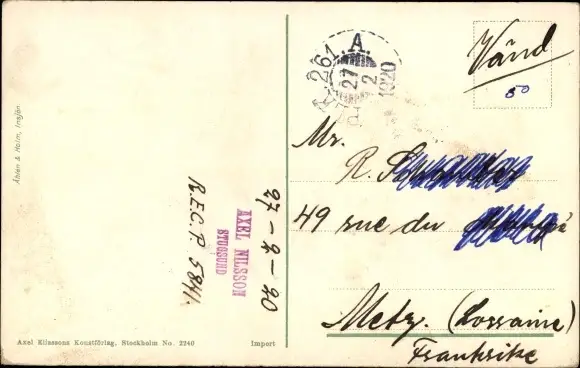 Vänd
50
261. A.
27
2
1920
Mr.
R.
49 rue du
Metz. (Lorraine)
Frankrike
27-2-20
AXEL NILSSON
STUGSUND
R.E.C.P. 5841.
Åhlén & Holm, Insjön.
Axel Eliassons Konstförlag, Stockholm No. 2240
Import